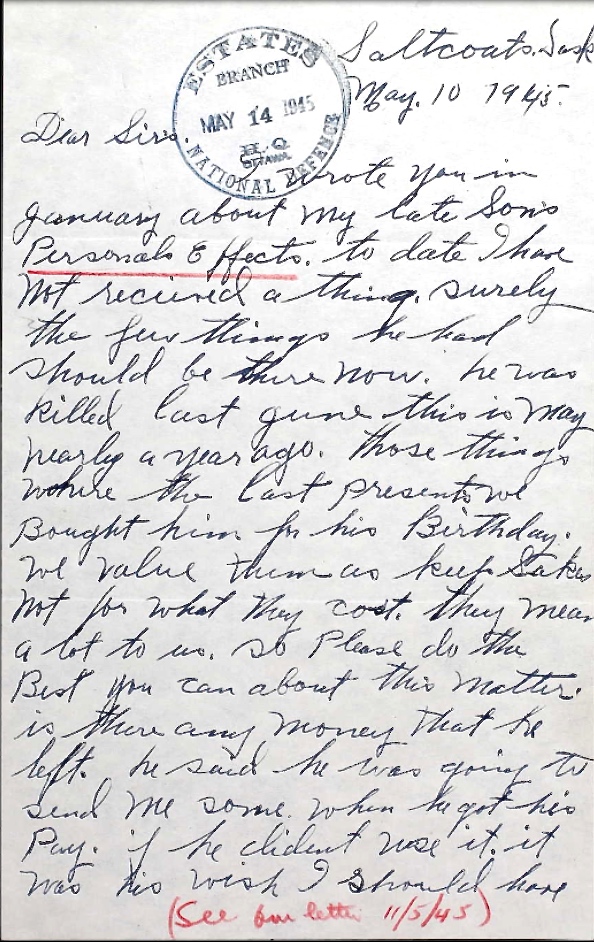 Saltcoats. Sask
May. 10 1945.
ESTATES
BRANCH
MAY 14 1945
H.Q
OTTAWA
NATIONAL DEFENCE
Dear Sirs.
I wrote you in
January about My late Son's
Personals Effects. to date I have
Not recieved a thing. surely
the few things he had
should be there now. he was
killed last june this is May
nearly a year ago. those things
where the last presents we
Bought him for his Birthday.
we value them as keep Sakes
Not for what they cost. they mean
a lot to us. so Please do the
Best you can about this Matter.
is there any money that he
left. he said he was going to
send me some. when he got his
Pay. if he dident use it. it
was his wish I should have
(See our letter 11/5/45)